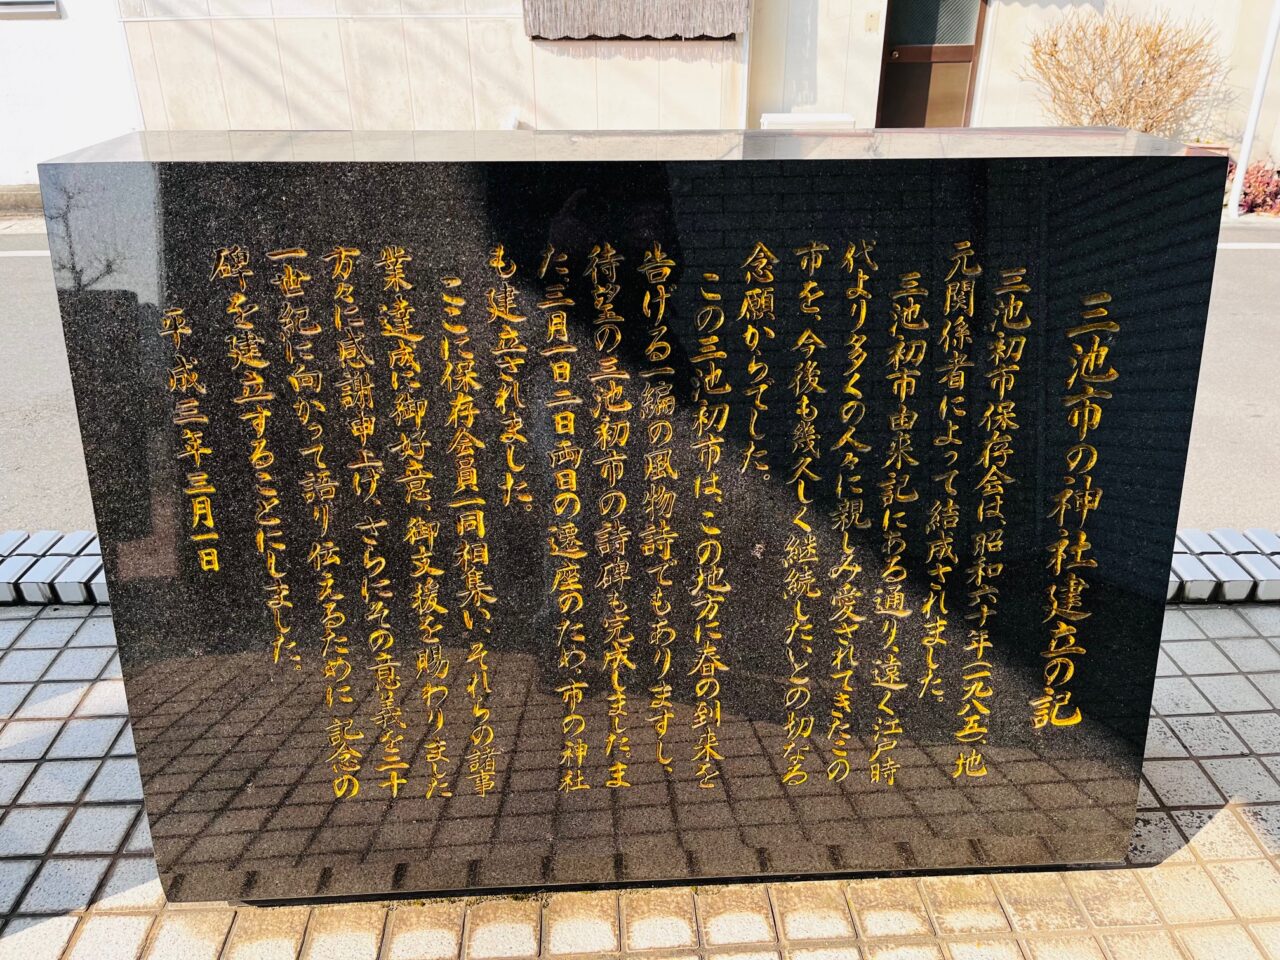 三池市の神社建立の記
三池初市保存会は、昭和六十年(一九八五)、地
元関係者によって結成されました。
三池初市由来記にある通り、遠く江戸時
代より多くの人々に親しみ愛されてきたこの
市を、今後も幾久しく継続したいとの切なる
念願からでした。
この三池初市は、この地方に春の到来を
告げる一編の風物詩でもありますし、
待望の三池初市の詩碑も完成しました。ま
た、三月一日二日両日の遷座のため、市の神社
も建立されました。
ここに保存会員一同相集い、それらの諸事
業達成に御好意、御支援を賜わりました
方々に感謝申上げ、さらにその意義を二十
一世紀に向かって語り伝えるために記念の
碑を建立することにしました。
平成三年三月一日